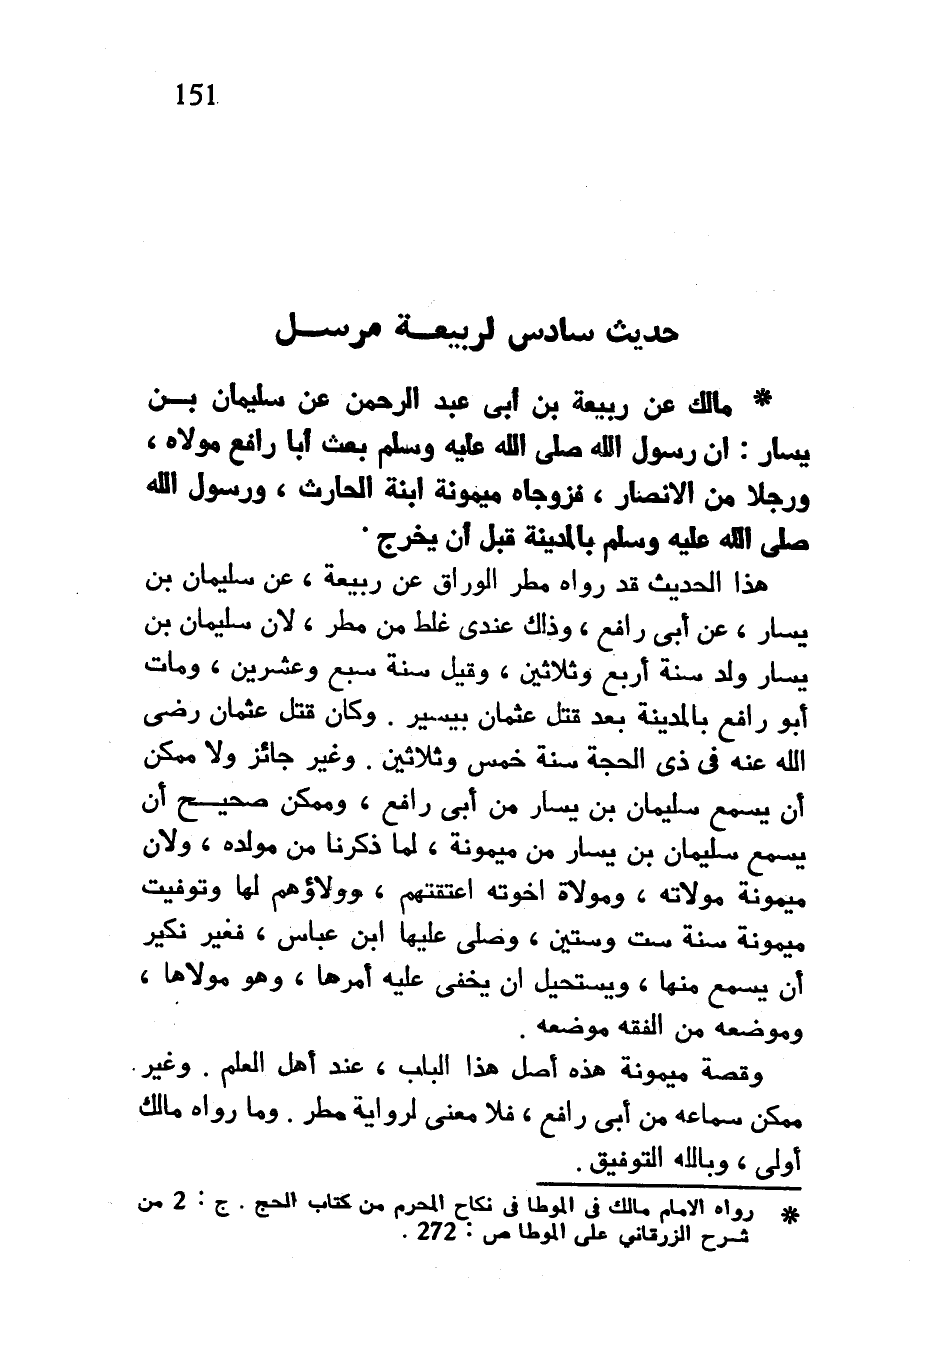 151
حديث سادس لربيعــة مرســل
* مالك عن ربيعة بن أبى عبد الرحمن عن سليمان بــن
يسار : ان رسول الله صلى الله عليه وسلم بعث أبا رافع مولاه ،
ورجلا من الانصار ، فزوجاه ميمونة ابنة الحارث ، ورسول الله
صلى الله عليه وسلم بالمدينة قبل أن يخرج .
هذا الحديث قد رواه مطر الوراق عن ربيعة ، عن سليمان بن
يسار ، عن أبى رافع ، وذاك عندى غلط من مطر ، لان سليمان بن
يسار ولد سنة أربع وثلاثين ، وقيل سنة سبع وعشرين ، ومات
أبو رافع بالمدينة بعد قتل عثمان بيسير . وكان قتل عثمان رضى
الله عنه فى ذى الحجة سنة خمس وثلاثين . وغير جائز ولا ممكن
أن يسمع سليمان بن يسار من أبى رافع ، وممكن صحيــح أن
يسمع سليمان بن يسار من ميمونة ، لما ذكرنا من مولده ، ولان
ميمونة مولاته ، ومولاة اخوته اعتقتهم ، وولاؤهم لها وتوفيت
ميمونة سنة ست وستين ، وصلى عليها ابن عباس ، فغير نكير
أن يسمع منها ، ويستحيل ان يخفى عليه أمرها ، وهو مولاها ،
وموضعه من الفقه موضعه .
وقصة ميمونة هذه أصل هذا الباب ، عند أهل العلم . وغير
ممكن سماعه من أبى رافع ، فلا معنى لرواية مطر . وما رواه مالك
أولى ، وبالله التوفيق .
* رواه الامام مالك فى الموطا فى نكاح المحرم من كتاب الحج . ج : 2 من
شرح الزرقاني على الموطا ص : 272 .